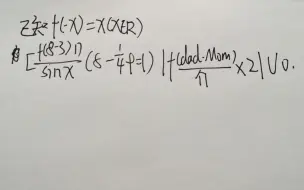 f(-x)=x(x∈R)
[f(8-3)π/sin x (8-1/4 p=1) |f(dad-Mom)/π ×2|∪0.